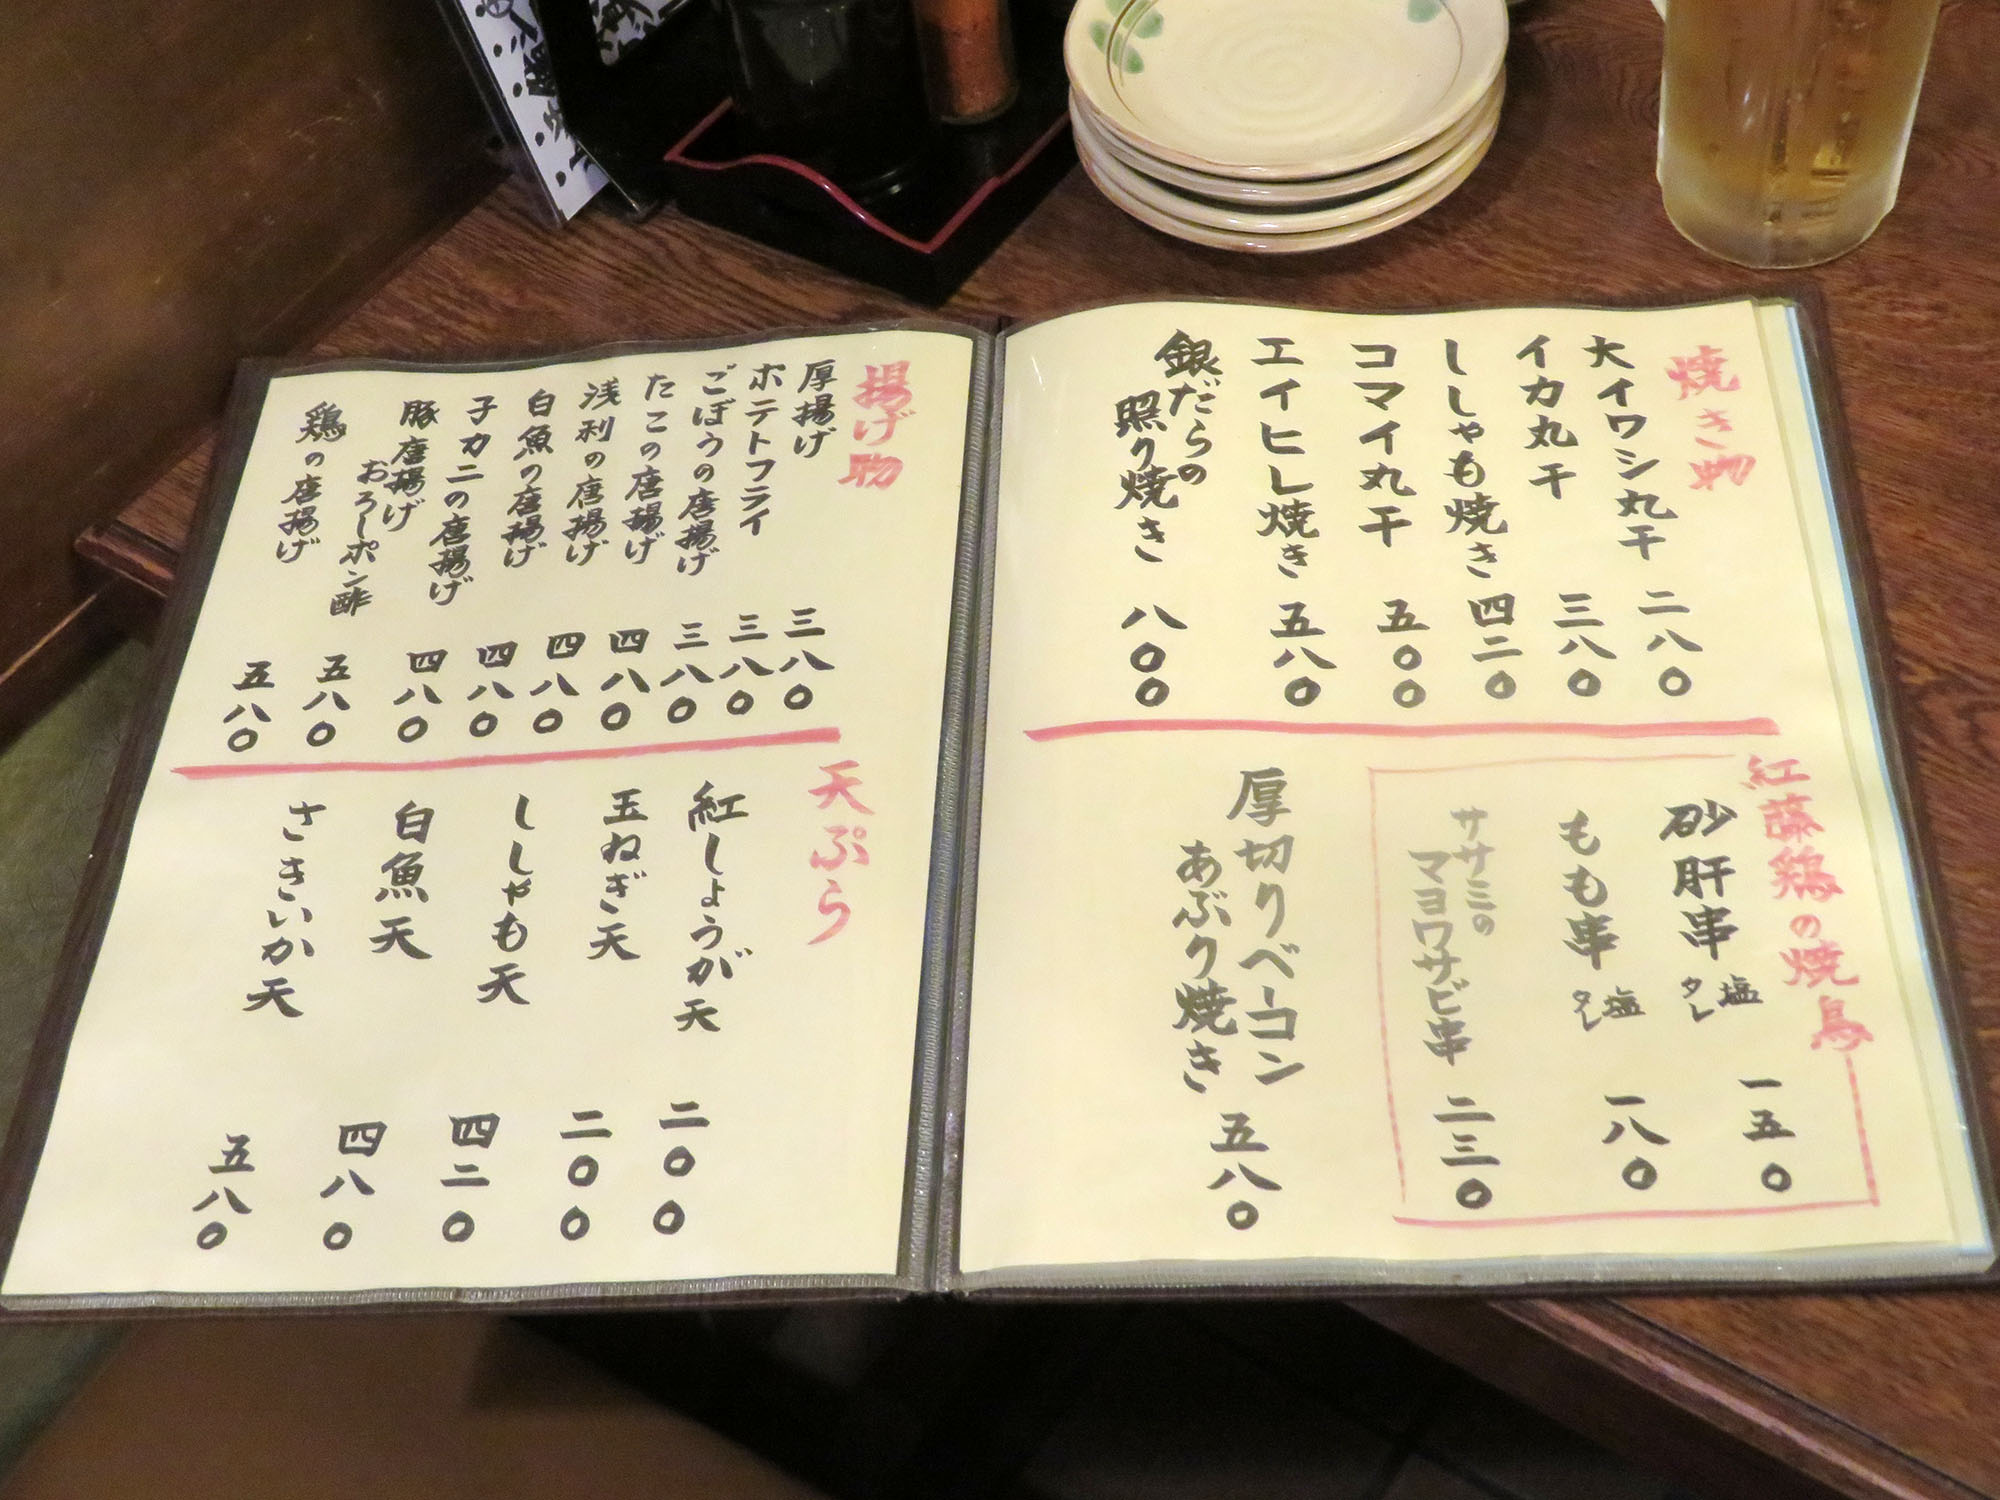 焼き物
大イワシ丸干 二八〇
イカ丸干 三八〇
ししゃも焼き 四二〇
コマイ丸干 五〇〇
エイヒレ焼き 五八〇
銀だらの
照り焼き 八〇〇
紅藤鶏の焼鳥
砂肝串 塩 タレ 一五〇
もも串 塩 タレ 一八〇
ササミの
マヨワサビ串 二三〇
厚切りベーコン
あぶり焼き 五八〇
揚げ物
厚揚げ 三八〇
ポテトフライ 三八〇
ごぼうの唐揚げ 三八〇
たこの唐揚げ 四八〇
浅利の唐揚げ 四八〇
白魚の唐揚げ 四八〇
子カニの唐揚げ 四八〇
豚唐揚げ
おろしポン酢 五八〇
鶏の唐揚げ 五八〇
天ぷら
紅しょうが天 二〇〇
玉ねぎ天 二〇〇
ししゃも天 四二〇
白魚天 四八〇
さきいか天 五八〇